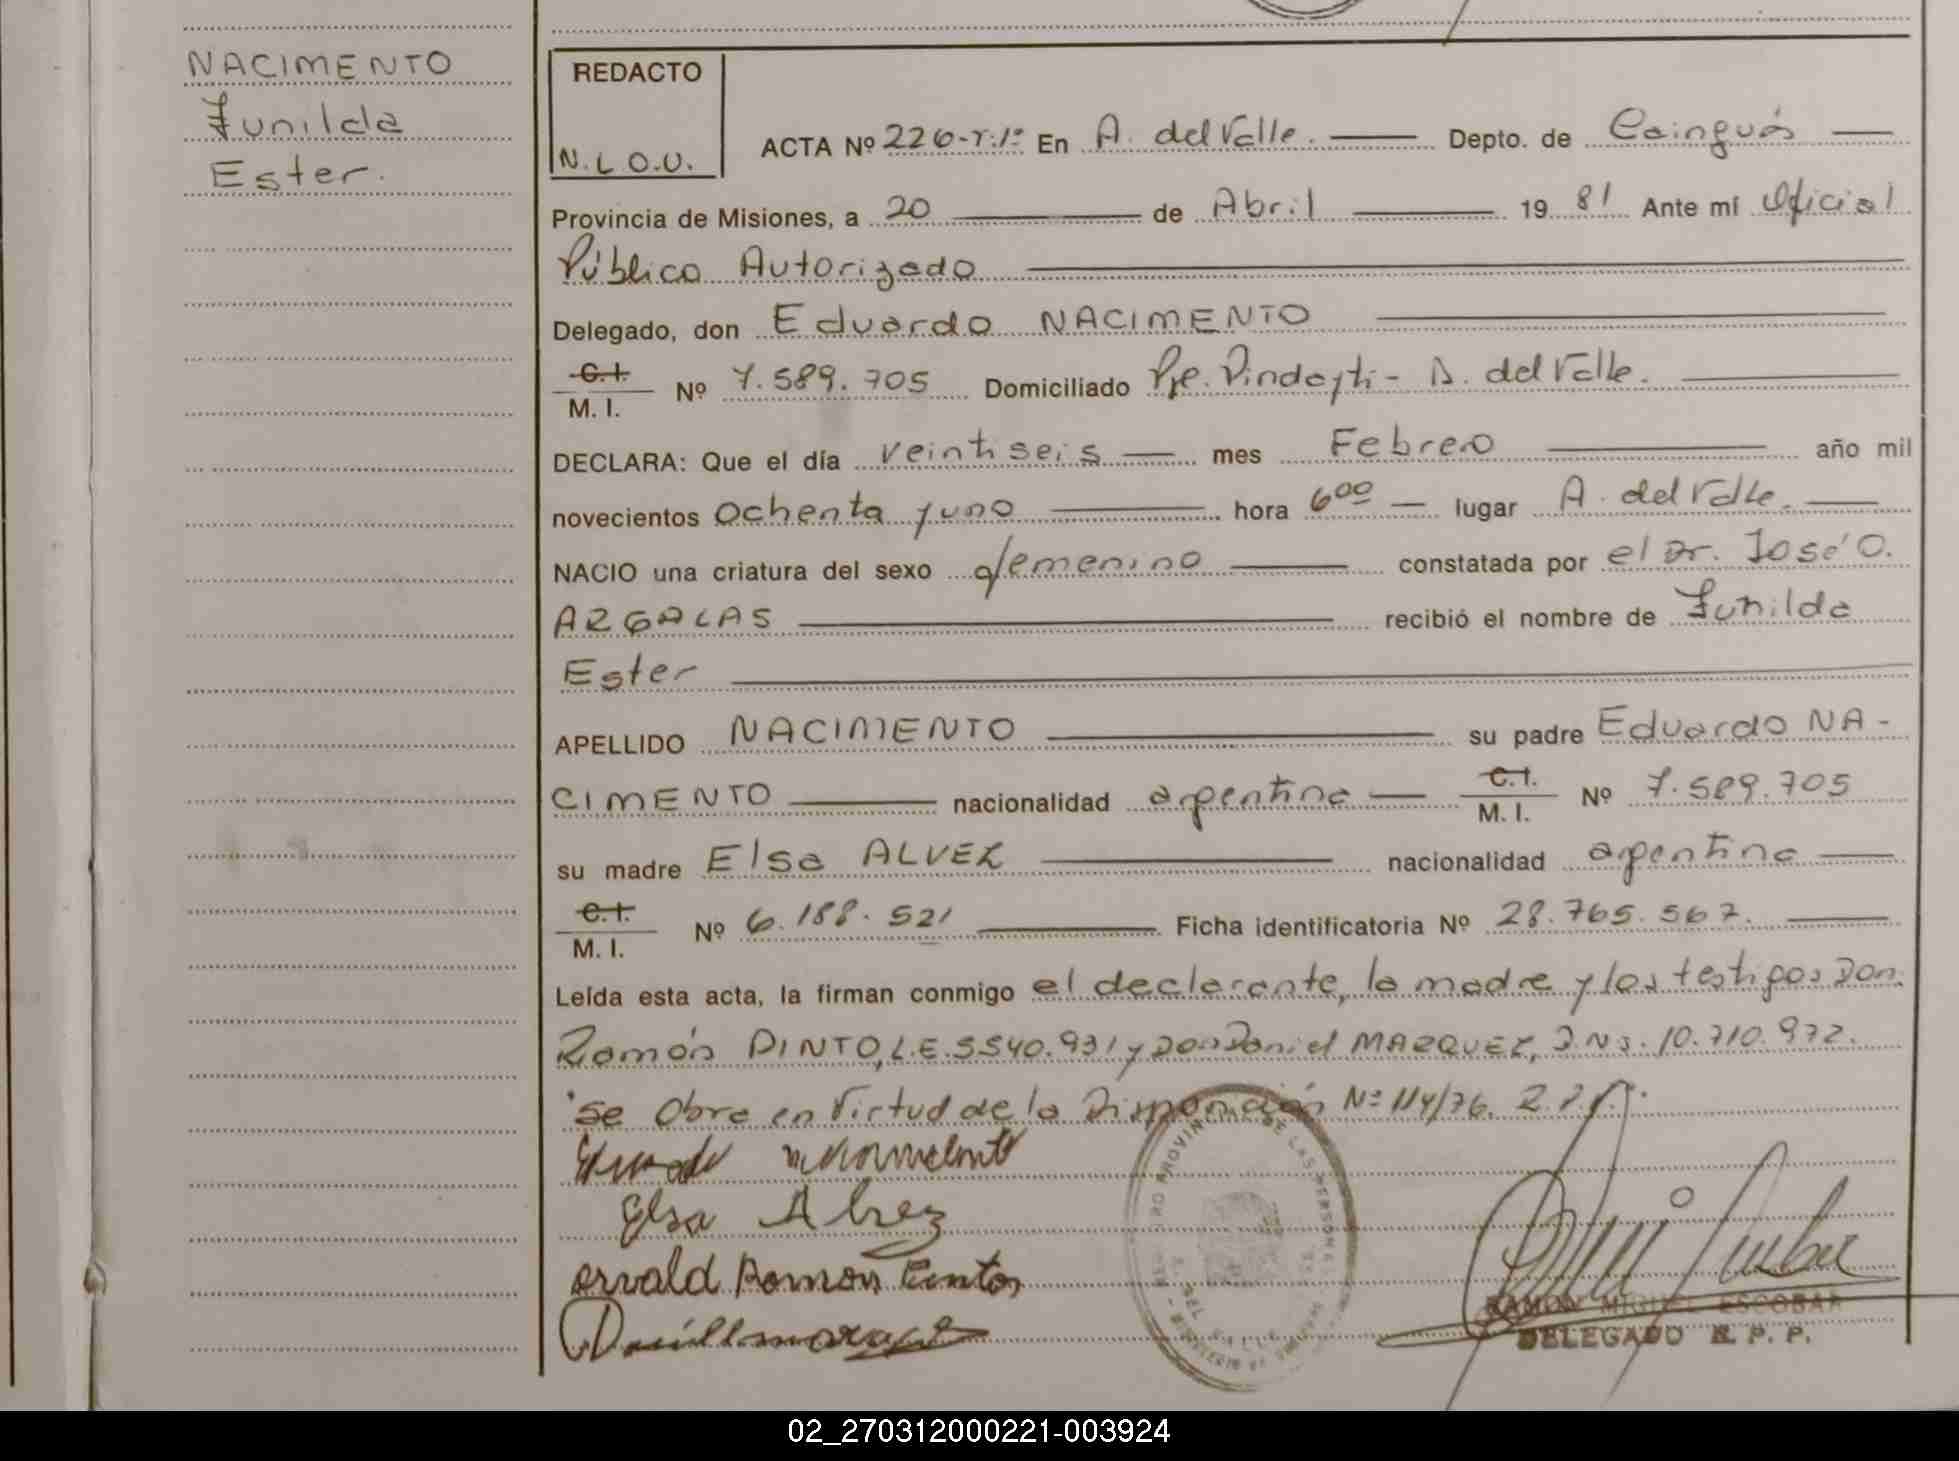 NACIMENTO
Zunilda
Ester.
REDACTO
N.L.O.U.
ACTA Nº 226-T:1º En A. del Valle. Depto. de Cainguás
Provincia de Misiones, a 20 de Abril 1981 Ante mí Oficial
Público Autorizado
Delegado, don Eduardo NACIMENTO
C.I.
M. I. Nº 7.589.705 Domiciliado Pje. Pindayti - A. del Valle.
DECLARA: Que el día veintiseis mes Febrero año mil
novecientos ochenta y uno hora 6⁰⁰ lugar A. del Valle.
NACIO una criatura del sexo femenino constatada por el Dr. José O.
ARGALAS recibió el nombre de Zunilda
Ester
APELLIDO NACIMENTO su padre Eduardo NA-
CIMENTO nacionalidad argentina C.I. M. I. Nº 7.589.705
su madre Elsa ALVEZ nacionalidad argentina
C.I.
M. I. Nº 6.188.521 Ficha identificatoria Nº 28.765.567.
Leída esta acta, la firman conmigo el declarante, la madre y los testigos Don
Ramón PINTO, L.E. 5540.931 y Don Daniel MARQUEZ, D.N.I. 10.710.972.
Se Obra en Virtud de la Disposición Nº 114/76. R.P.P.
Elsa Alvez
Osvald Ramon Pintos
RAMON MIGUEL ESCOBAR
DELEGADO R. P. P.
02_270312000221-003924